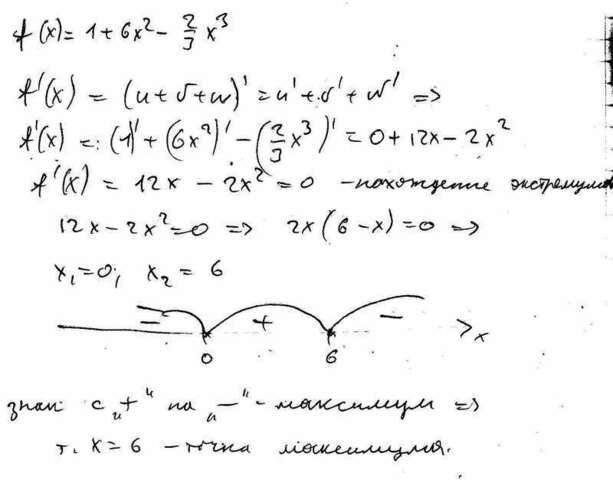 f(x) = 1 + 6x² - 2/3 x³
f'(x) = (u + v + w)' = u' + v' + w' =>
f'(x) = (1)' + (6x²)' - (2/3 x³)' = 0 + 12x - 2x²
f'(x) = 12x - 2x² = 0 - нахождение экстремума
12x - 2x² = 0 => 2x(6 - x) = 0 =>
x₁ = 0; x₂ = 6
- + - x
0 6
знак с „+“ на „-“ - максимум =>
т. x = 6 - точка максимума.